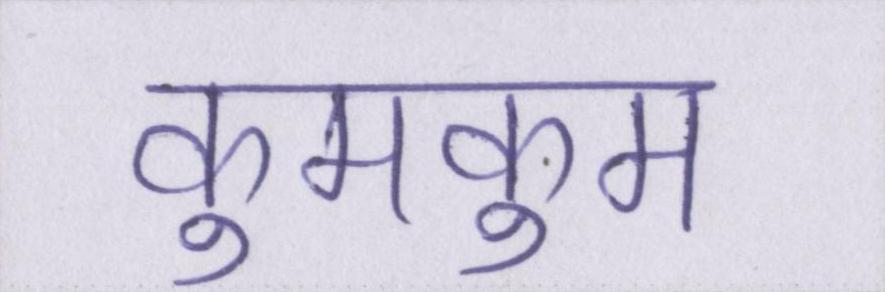 कुमकुम